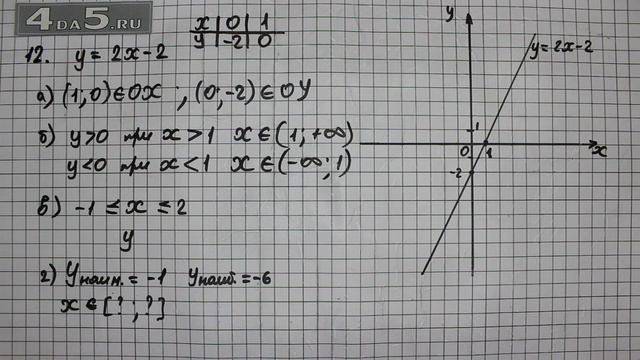 4DA5.RU
x | 0 | 1
y | -2 | 0
12. y = 2x-2
а) (1;0)∈OX ; (0;-2)∈OY
б) y>0 при x>1 x∈(1;+∞)
y<0 при x<1 x∈(-∞;1)
в) -1 ≤ x ≤ 2
y
г) Yнаим. = -1 Yнаиб. = -6
x ∈ [?;?]
y
y=2x-2
1
0
1
x
-2